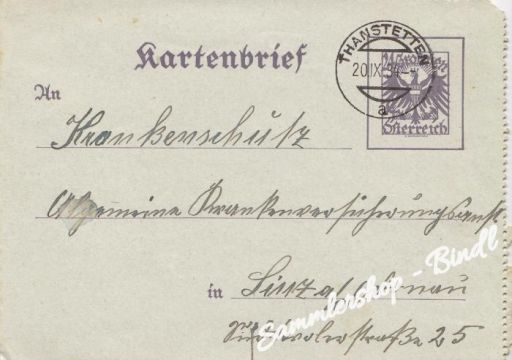 Kartenbrief
THANSTETTEN
20.IX.34
a
Österreich
An
Krankenschutz
Allgemeine Krankenversicherungsanst
in Linz a/Donau
Südtirolerstraße 25
Sammlershop - Bindl